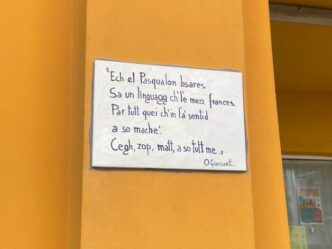 "Ech el Pasqualon bsares.
Sa un linguagg ch'l'è mezz frances.
Par tutt quei ch'in l'à sentid
a so machè:
Cegh, zop, matt, a so tutt me..„
O. Giansanti